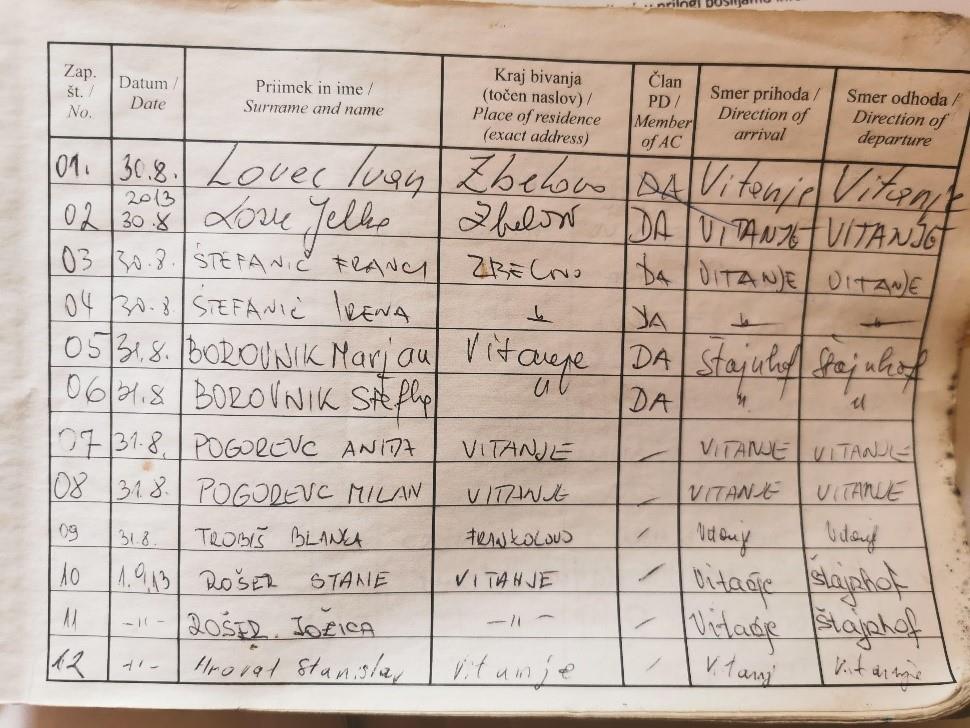 prilogi pošiljamo
Zap. št. / No. Datum / Date Priimek in ime / Surname and name Kraj bivanja (točen naslov) / Place of residence (exact address) Član PD / Member of AC Smer prihoda / Direction of arrival Smer odhoda / Direction of departure
01. 30.8. 2013 Lovec Ivan Zbelovo DA Vitanje Vitanje
02 30.8 Jelka Zbelovo DA VITANJE VITANJE
03 30.8. ŠTEFANIČ FRANCI ZBELOVO DA VITANJE VITANJE
04 30.8. ŠTEFANIČ IRENA DA
05 31.8. BOROVNIK Marjan Vitanje DA Štajnhof Štajnhof
06 31.8 BOROVNIK Štefka " DA " "
07 31.8. POGOREVC ANITA VITANJE / VITANJE VITANJE
08 31.8. POGOREVC MILAN VITANJE / VITANJE VITANJE
09 31.8. TROBIŠ BLANKA FRANKOLOVO / Vitanj Vitanj
10 1.9.13 ROŠER STANE VITANJE / Vitanje Štajnhof
11 -"- ROŠER JOŽICA -"- / Vitanje Štajnhof
12 -"- Hrovat Stanislav Vitanje / Vitanj Vitanje